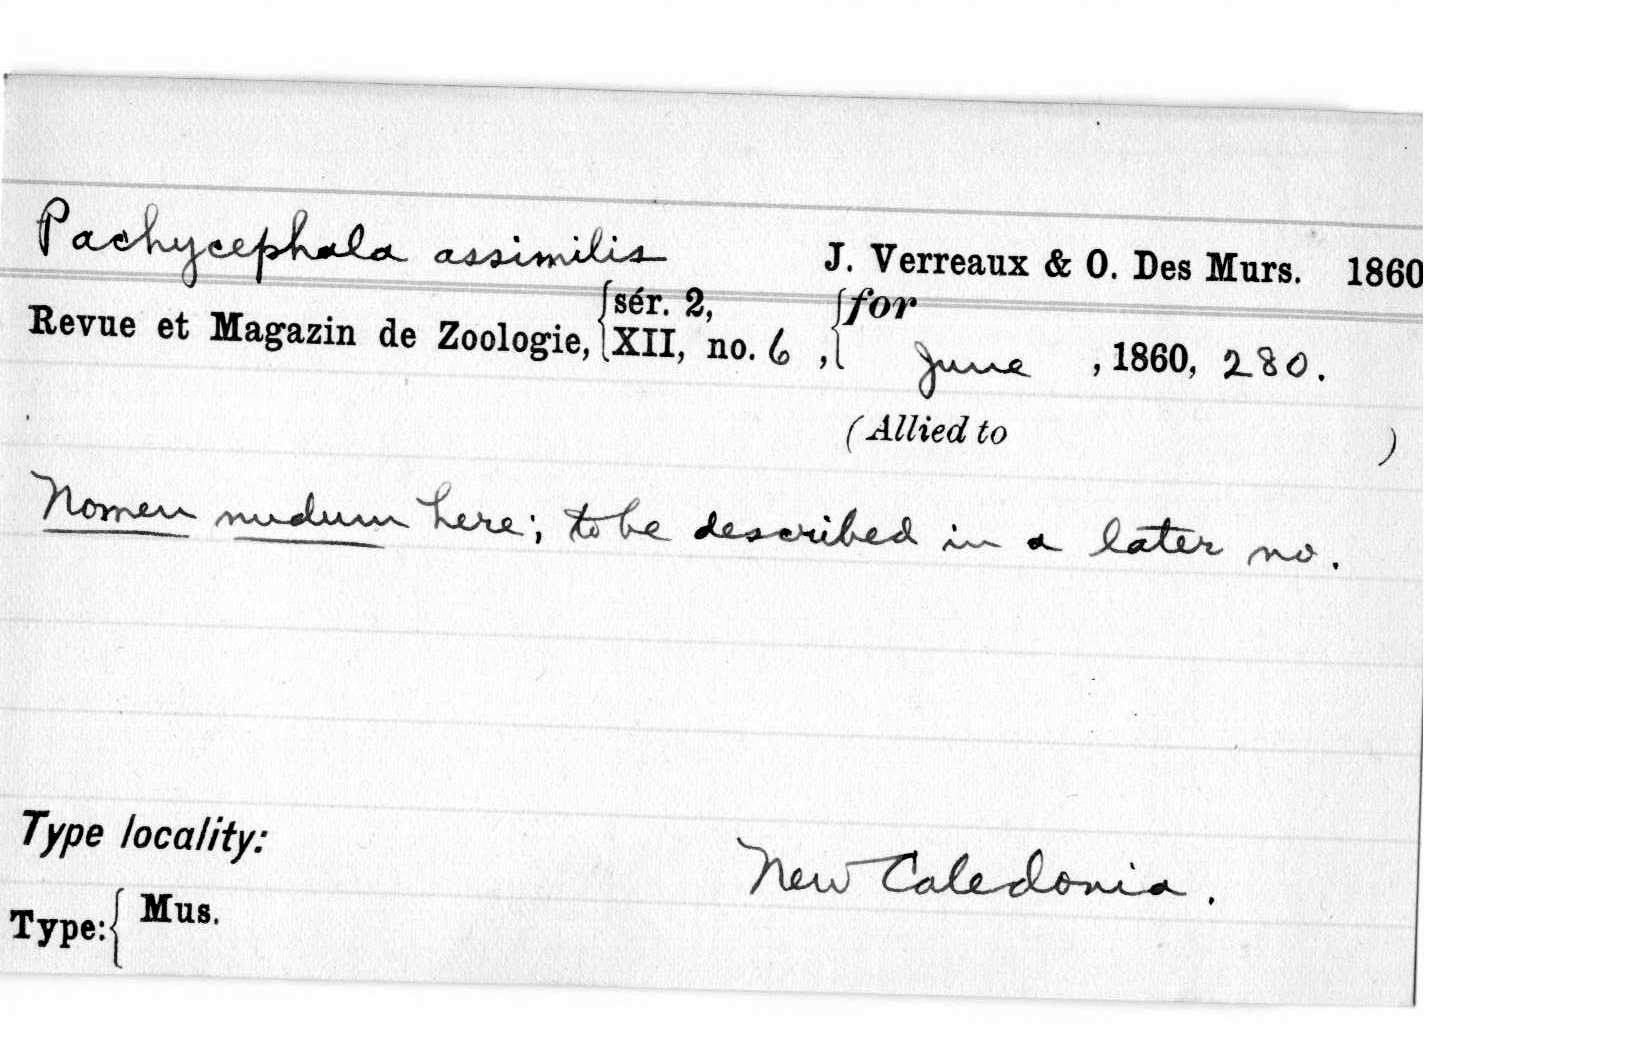 Pachycephala assimilis J. Verreaux & O. Des Murs. 1860
Revue et Magazin de Zoologie, {sér. 2, XII, no. 6 , {for June , 1860, 280.
(Allied to )
Nomen nudum here; to be described in a later no.
Type locality: New Caledonia.
Type: { Mus.